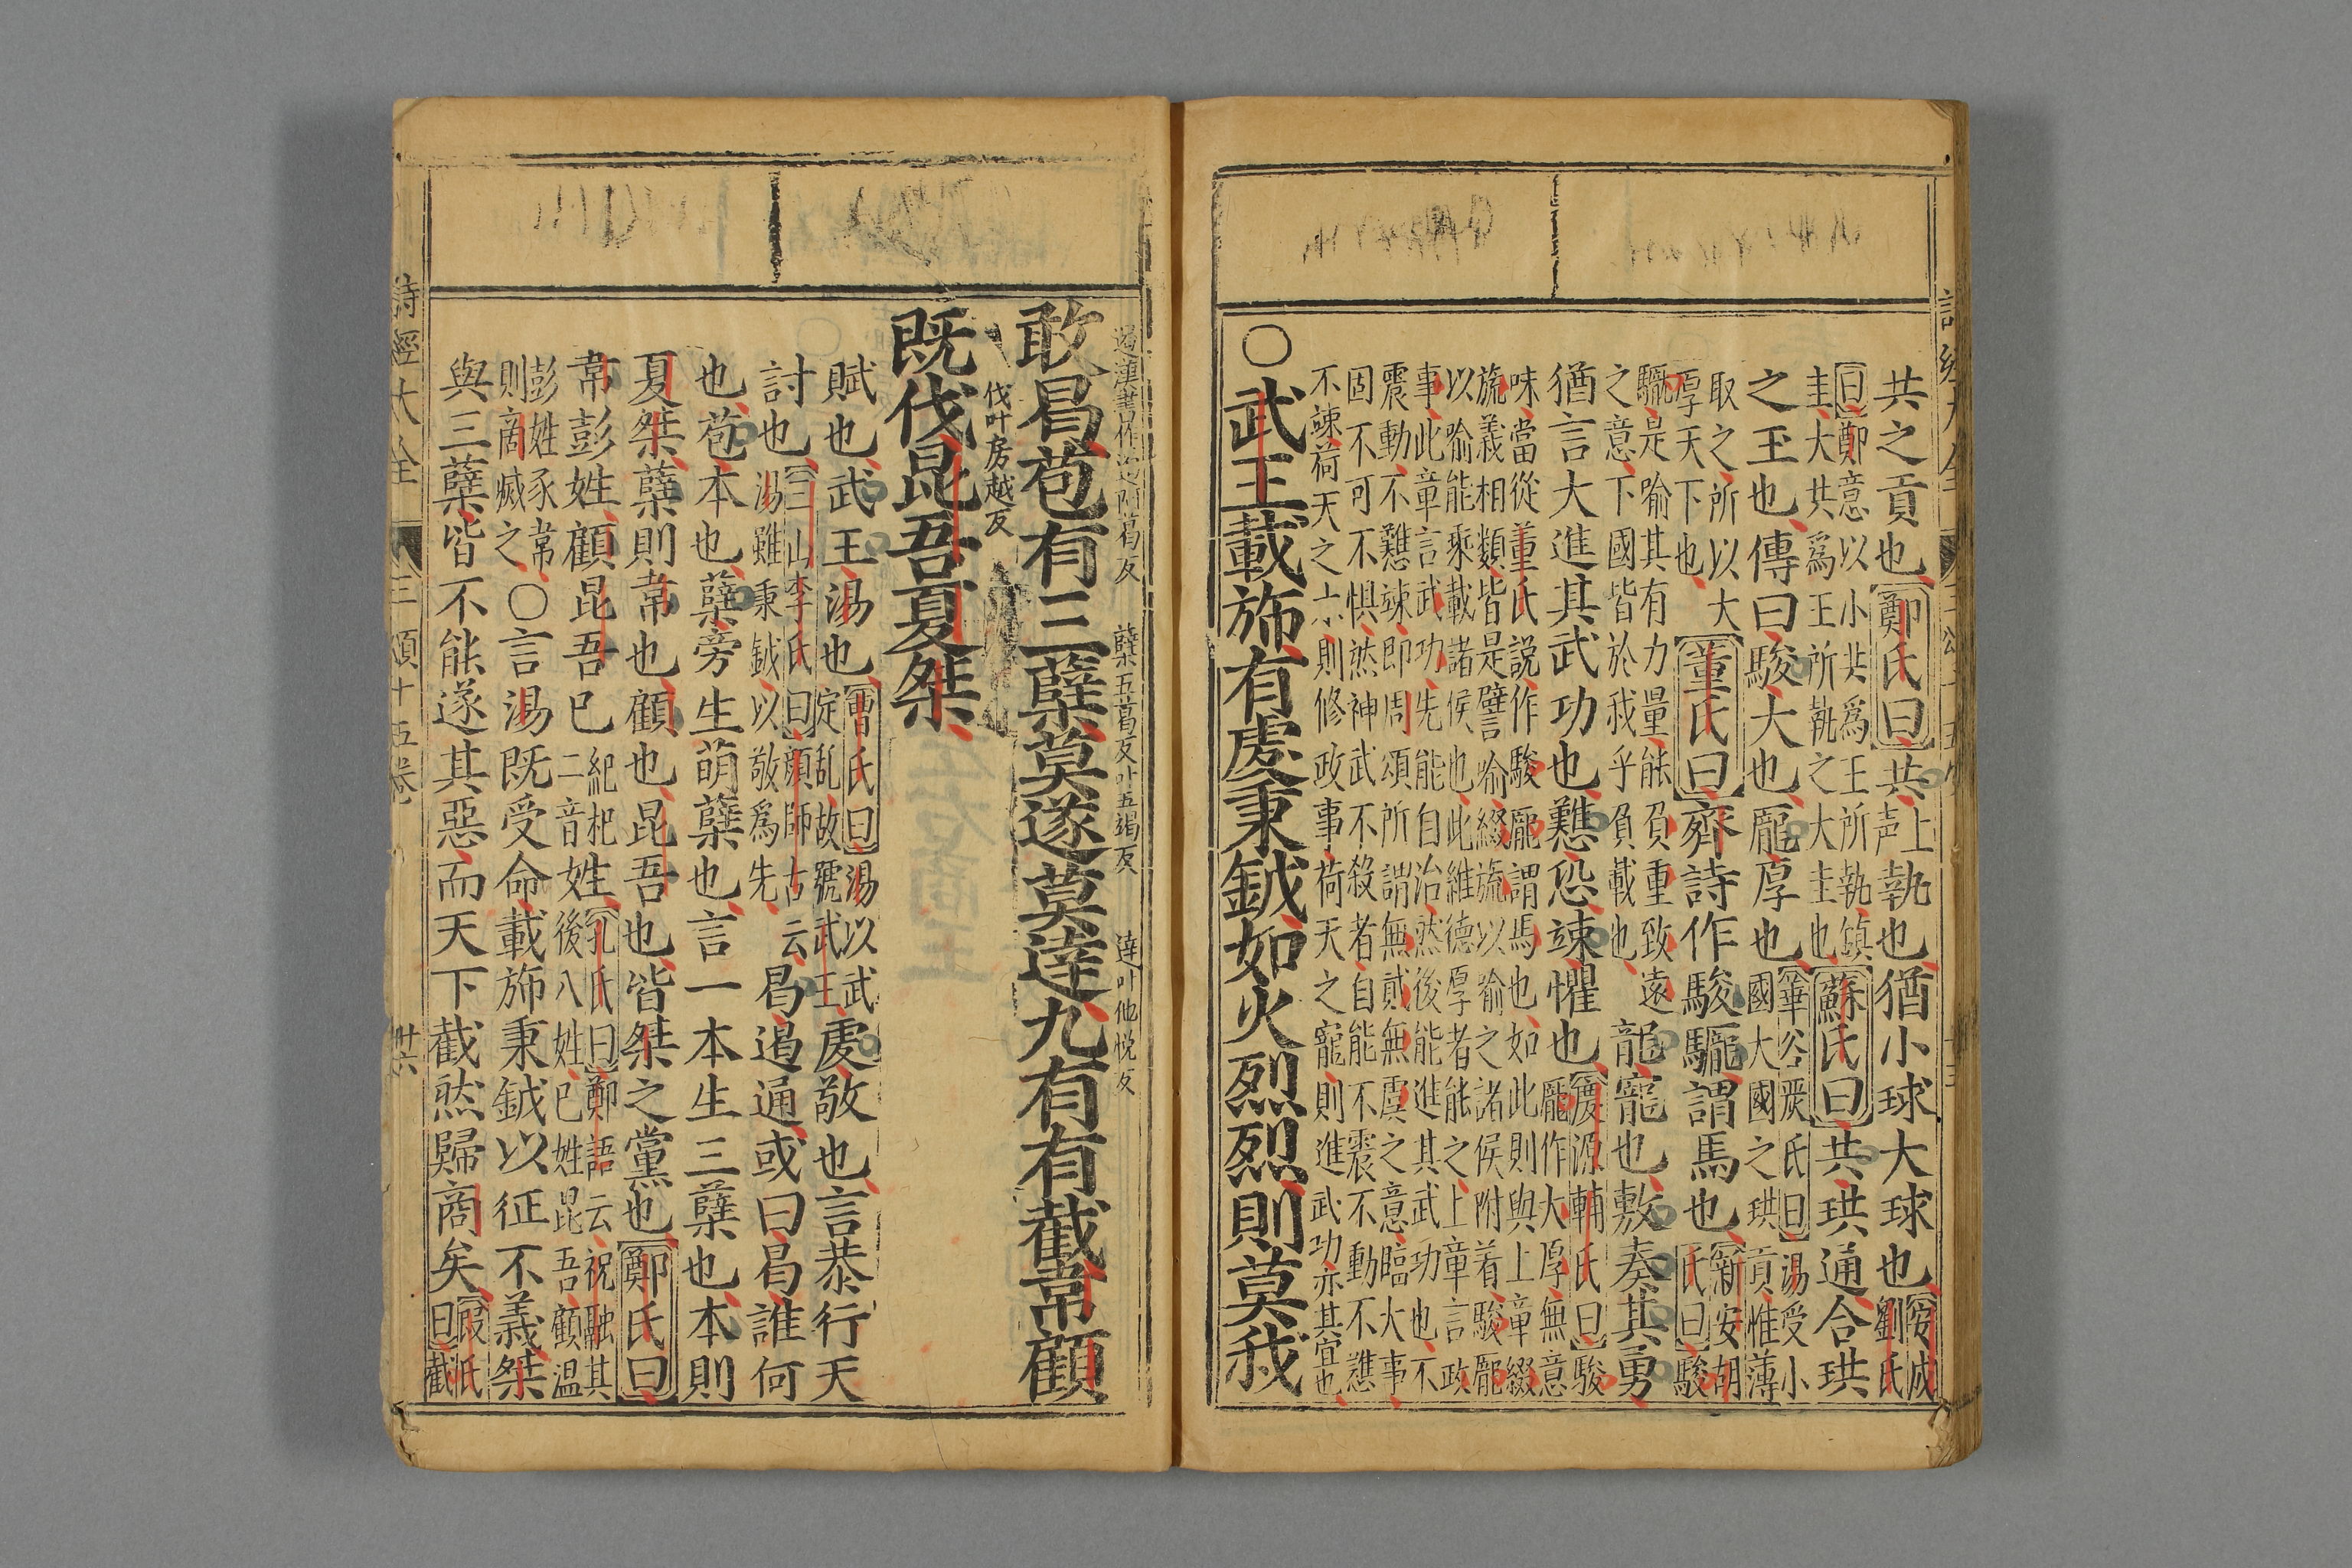 共之貢也鄭氏曰共上声執也猶小球大球也安成劉氏
曰鄭意以小共爲王所執鎮
圭大共爲王所執之大圭也蘇氏曰共珙通合珙
之玉也傳曰駿大也厖厚也華谷嚴氏曰湯受小
國大國之珙貢惟薄
取之所以大
厚天下也董氏曰齊詩作駿駹謂馬也新安胡氏曰駿
駹是喻其有力量能負重致遠
之意下國皆於我乎負載也龍寵也敷奏其勇
猶言大進其武功也戁恐竦懼也慶源輔氏曰駿
厖作大厚無意
味當從董氏說作駿厖謂馬也如此則與上章綴
旒義相類皆是譬喻綴旒以喻之諸侯附着駿厖
以喻能乘載諸侯也此維德厚者能之上章言政
事此章言武功先能自治然後能進其武功也不
震動不戁竦即周頌所謂無貳無虞之意臨大事
固不可不惧然神武不殺者自能不震不動不戁
不竦荷天之則修政事荷天之寵則進武功亦其宜也
○武王載旆有虔秉鉞如火烈烈則莫我
敢曷苞有三蘖莫遂莫達九有有截韋顧
蘖五葛反叶五竭反 達叶他悦反
伐叶房越反
既伐昆吾夏桀
賦也武王湯也曾氏曰湯以武
定乱故號武王虔敬也言恭行天
討也三山李氏曰顔師古云
湯雖秉鉞以敬爲先曷遏通或曰曷誰何
也苞本也蘖旁生萌蘖也言一本生三蘖也本則
夏桀蘖則韋也顧也昆吾也皆桀之黨也鄭氏曰
韋彭姓顧昆吾已紀杞
二音姓孔氏曰鄭語云祝融其
後八姓已姓昆吾顧温
彭姓豕韋
則商滅之○言湯既受命載旆秉鉞以征不義桀
與三蘖皆不能遂其惡而天下截然歸商矣段氏
曰截
詩經大全
三頌十五卷
卅六